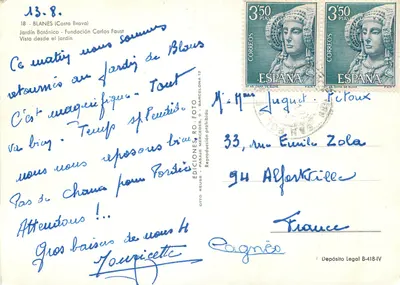 13.8.
18 - BLANES (Costa Brava)
Jardín Botánico - Fundación Carlos Faust
Vista desde el Jardín
Ce matin nous sommes
retournés au jardin de Blanes
C'est magnifique. Tout
va bien. Temps splendide.
nous nous reposons bien.
Pas de chance pour
Attendons !..
Gros baisers de nous 4
EDICIONES RO-FOTO
BARCELONA
Reproducción prohibida
3,50
PTAS
ESPAÑA
3,50
PTAS
ESPAÑA
M. Mme
33, rue Emile Zola
94 Alfortville
France
Depósito Legal B-418-IV